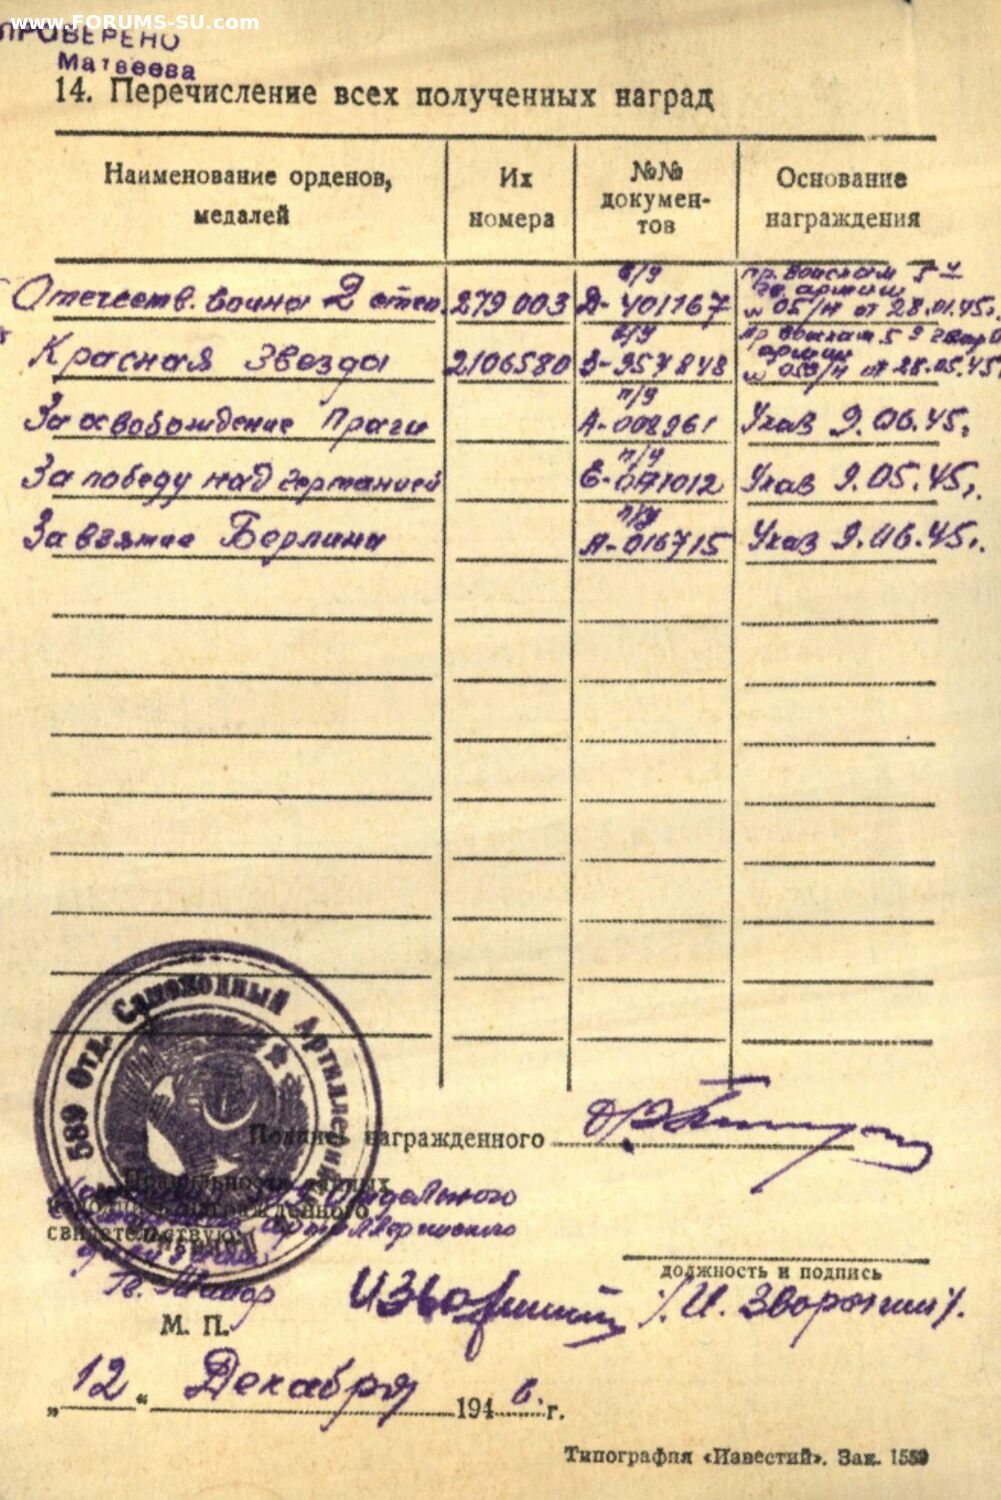 www.FORUMS-SU.com
ПРОВЕРЕНО
Матвеева
14. Перечисление всех полученных наград
Наименование орденов, медалей
Их номера
№№ докумен-
тов
Основание награждения
Отечеств. война 2 степ. 279003 в/у Д-401167 пр. войскам 5 гв армии № 05/н от 28.01.45г.
Красная Звезда 2106580 в/у З-957848 пр войскам 5 гвард армии № 059/н от 28.05.45г
За освобождение Праги п/у А-008961 Указ 9.06.45г.
За победу над Германией п/у Е-0171012 Указ 9.05.45г.
За взятие Берлина п/у А-016715 Указ 9.06.45г.
589 Отд. Самоходный Артиллерийский
Подпись награжденного
Правильность данных
и подпись награжденного
свидетельствую:
Отдельного
артиллерийского
дивизиона
Гв. Майор
должность и подпись
/И. Зворыкин/.
М. П.
„12“ Декабря 1946.г.
Типография «Известий». Зак. 1559